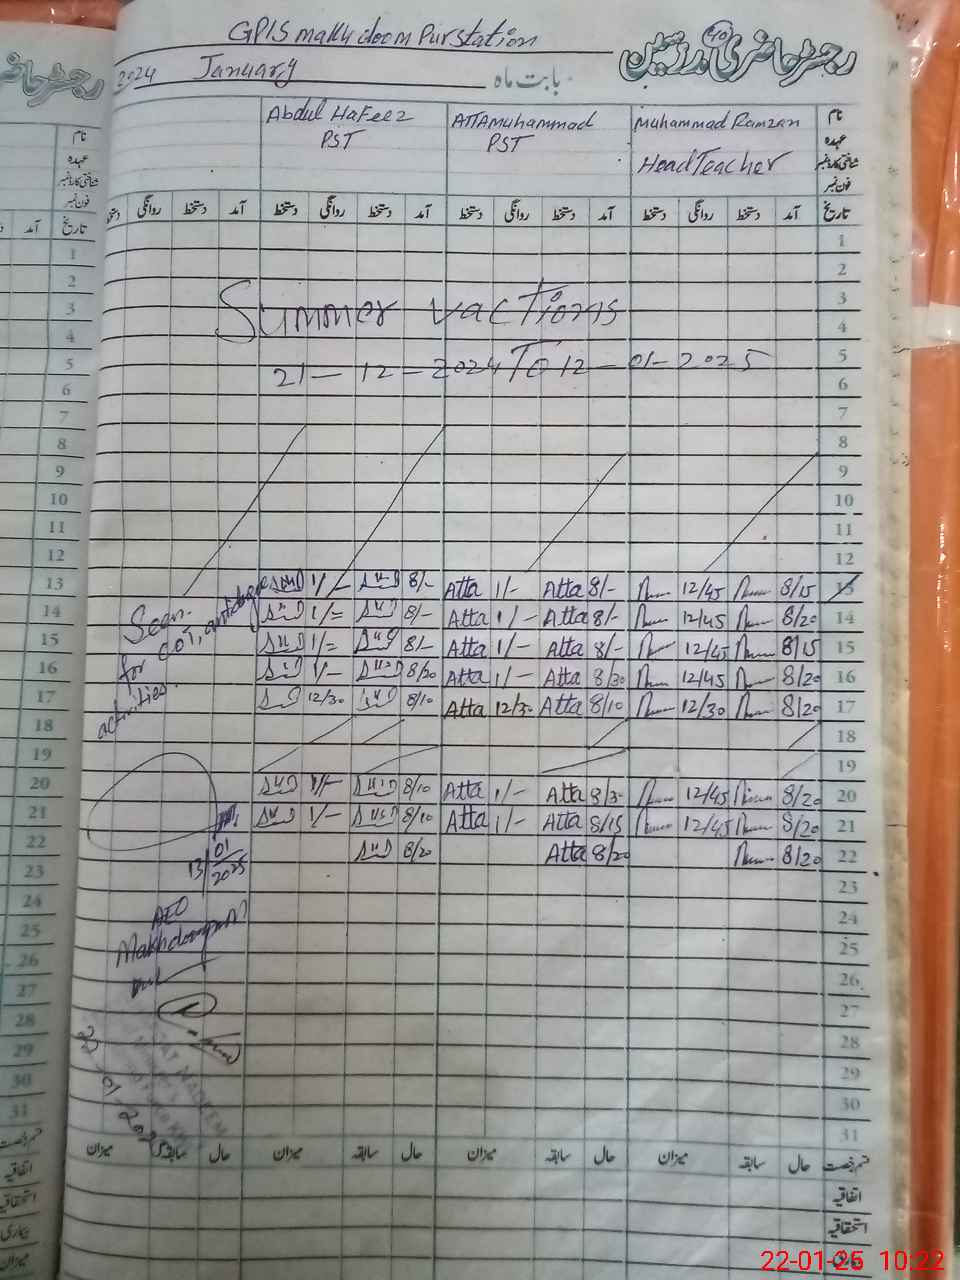 GPIS makhdoom Pur station
40
رجسٹر حاضری مدرسین
2024 January بابت ماہ
Abdul Hafeez AttAmuhammad Muhammad Ramzan نام
PST PST Head Teacher عہدہ
شناختی کارڈ نمبر
فون نمبر
روانگی دستخط آمد دستخط روانگی دستخط آمد دستخط روانگی دستخط آمد دستخط روانگی دستخط آمد تاریخ
1
2
Summer vactions 3
4
21-12-2024 To 12-01-2025 5
6
7
8
9
10
11
12
1/- 8/- Atta 1/- Atta 8/- 12/45 8/15 13
1/= 8/- Atta 1/- Atta 8/- 12/45 8/20 14
1/= 8/- Atta 1/- Atta 8/- 12/45 8/15 15
1/- 8/20 Atta 1/- Atta 8/20 12/45 8/20 16
12/30 8/10 Atta 12/30 Atta 8/10 12/30 8/20 17
18
19
1/- 8/10 Atta 1/- Atta 8/30 12/45 8/20 20
1/- 8/10 Atta 1/- Atta 8/15 12/45 8/20 21
8/20 Atta 8/20 8/20 22
23
24
25
26
27
28
29
30
31
Seen
for COT, antidengue
activities.
13/01/2025
AEO
Makhdoompur
22-01-2025
میزان سابقہ حال میزان سابقہ حال میزان سابقہ حال میزان سابقہ حال قسم رخصت
اتفاقیہ
استحقاقیہ
بیماری
22-01-25 10:22